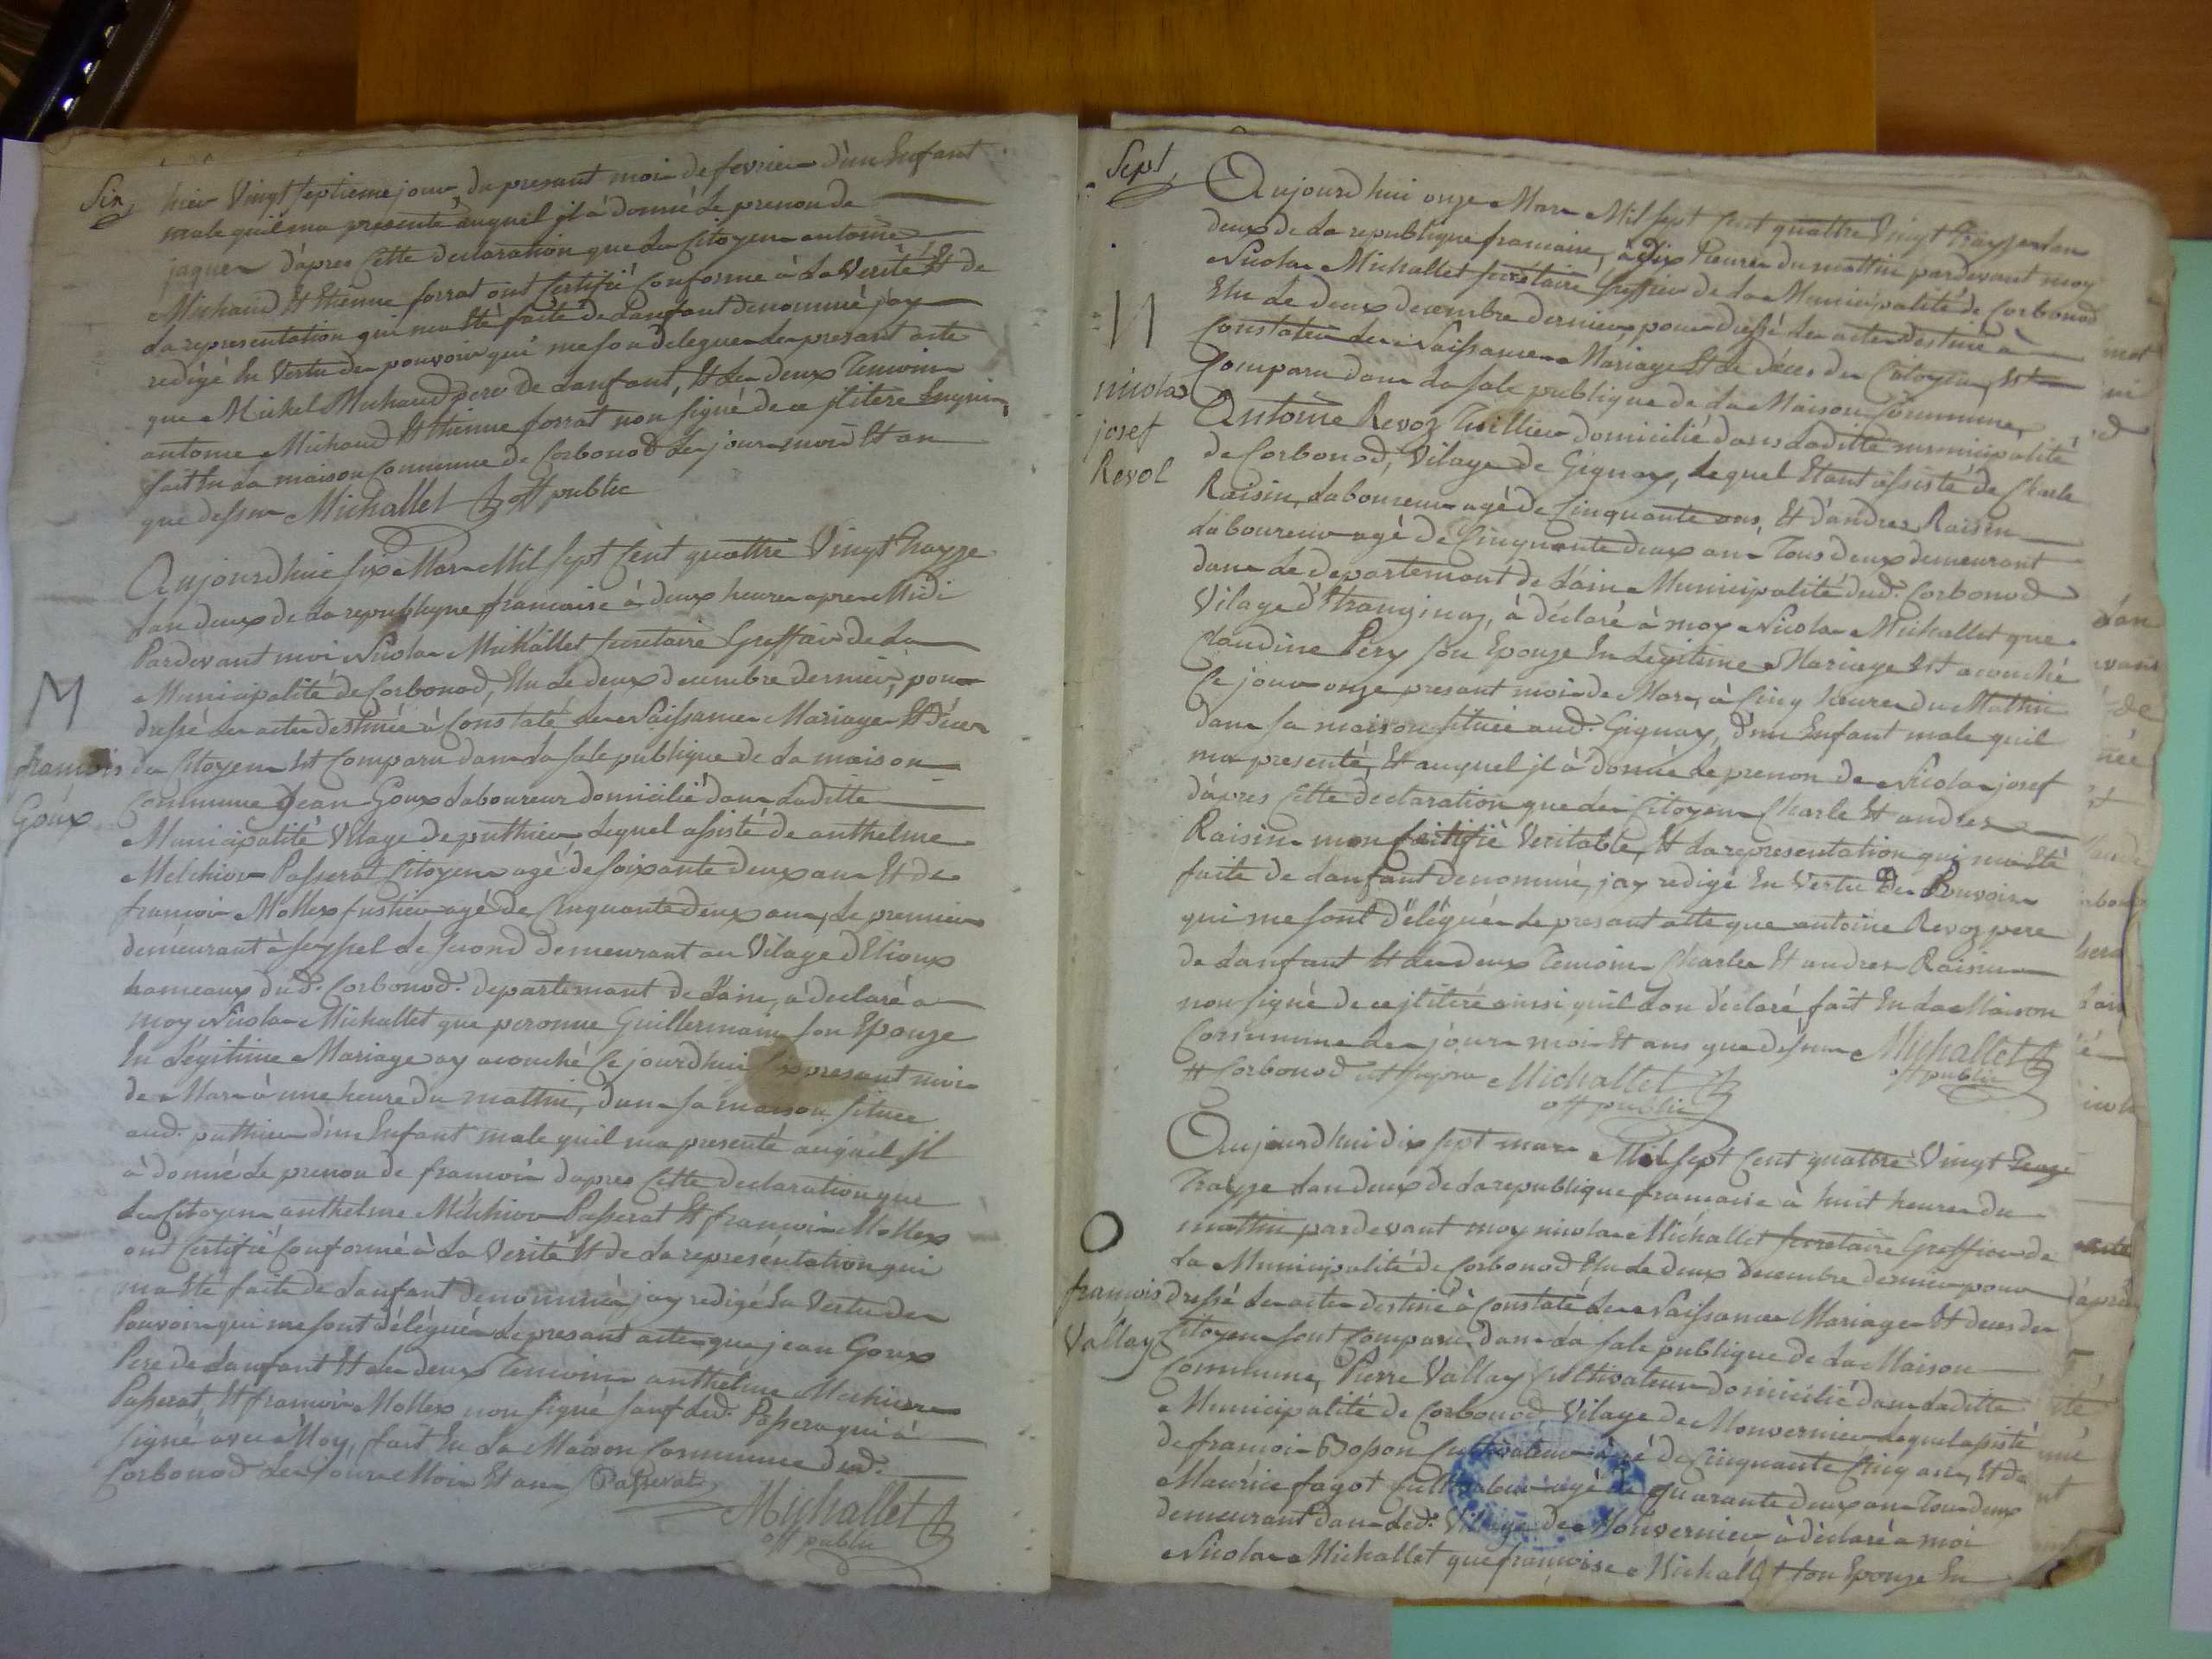 Six
hier Vingt septieme jour du presant moi de fevrier d'un Enfant
male quil ma presenté auquel jl à donné Le prenon de
jaques d'apres Cette declaration que Les Citoyens antoine
Michaud Et Etienne forrat ont Certifié Conforme à La Verité Et de
La representation qui ma Eté faite de Lanfant denommé jay
redigé En Vertu des pouvoir qui me son delegues Le presant acte
que Michel Michaud pere de Lanfant, Et Les deux Temoins
antoine Michaud Et Etienne forrat non signé de ce
fait En La maison Commune de Corbonod Les jour mois Et an
que dessus Michallet off public
Aujourdhui six Mars Mil sept Cent quattre Vingt Trayze
Lan deux de La republique francaise à deux heures apres Midi
Pardevant moi Nicolas Michallet secretaire Greffier de La
Municipalité de Corbonod, Elu Le deux decembre dernier, pour
M
dressé Les actes destinée à Constaté Les Naissances Mariages Et déces
francois
des Citoyens Est Comparu dans La sale publique de La maison
Goux
Commune Jean Goux Laboureur domicilié dans Laditte
Municipalité Vilage de puthier, Lequel assisté de anthelme
Melchior Passerat Citoyen agé de soixante deux ans Et de
francois Mollex fustier agé de Cinquante deux ans, Le premier
demeurant à seyssel Le second demeurant au Vilage d'Etioux
hameaux dud. Corbonod. departemant de Lain, à declaré à
moy Nicolas Michallet que peronne Guillermain son Epouze
En Légitime Mariage ay acouché Ce jourdhui six presant mois
de Mars à une heure du mattin, dans sa maison situee
aud. puthier d'un Enfant male quil ma presenté auquel jl
à donné Le prenon de francois dapres Cette declaration que
Les Citoyens anthelme Mélchior Passerat Et francois Mollex
ont Certifié Conforme à La Verité Et de La representation qui
ma Eté faite de Lanfant denommé jay redigé En Vertu des
Pouvoir qui me sont délégués Le presant acte que jean Goux
Pere de Lanfant Et Les deux Temoins anthelme
Passerat, Et francois Mollex non signé sauf Led. Passera qui à
signé avec Moy, fait En La Maison Commune dud.
Corbonod Les Jour Mois Et an Passerat
Michallet
off public
Sept
Aujourdhui onze Mars Mil sept Cent quattre Vingt Trayze Lan
deux de La republique francaise, à dix heures du mattin pardevant moy
Nicolas Michallet secretaire Greffier de La Municipalité de Corbonod
Elu Le deux decembre dernier pour dressé Les actes destiné à
N
Constater Les Naissances Mariage Et de déces des Citoyens, Est
Comparu dans La sale publique de La Maison Commune,
nicolas
Antoine Revoz Tuillier domicilié dans Laditte municipalité
josef
de Corbonod, Vilage de Gignay, Lequel Etant assisté de Charle
Revol
Raisin, Laboureur agé de Cinquante ans, Et d'andres Raisin
Laboureur agé de Cinquante deux ans Tous deux demeurant
dans Le departemant de Lain Municipalité dud. Corbonod
Vilage d'Etranginaz, à déclaré à moy Nicolas Michallet que
Claudine Péry son Epouze En Légitime Mariage Est acouché
Ce jour onze presant moi de Mars, à Cinq heures du Mattin
dans sa maison situeé aud. Gignay, d'un Enfant male quil
ma presenté, Et auquel jl à donné Le prenon de Nicolas josef
dàpres Cette declaration que Les Citoyens Charle Et andres
Raisin mon Certifié Veritable, Et La representation qui ma Eté
faite de Lanfant denommé, jay redigé En Vertu des Pouvoirs
qui me sont déléguée Le presant acte que antoine Revoz pere
de Lanfant Et Les deux Temoins Charles Et andres Raisin
non signé de ce jlitéré ainsi quil Lon déclaré fait En La Maison
Commune Les jour moi Et ans que dessus Michallet
off public
# Corbonod Michallet
off public
Aujourdhui dix sept mars Mil sept Cent quattre Vingt
Trayze Lan deux de La republique francaise à huit heures du
mattin pardevant moy nicolas Michallet secretaire Greffier de
O
La Municipalité de Corbonod Elu Le deux decembre dernier pour
francois
dressé Les actes destiné à Constaté Les Naissances Mariages Et deces des
Vallay
Citoyens sont Comparu dans La sale publique de La Maison
Commune, Pierre Vallay Cultivateur domicilié dans Laditte
Municipalité de Corbonod Vilage de Monvernier Lequel assisté
de francois Bosson Cultivateur agé de Cinquante Cinq ans, Et de
Maurice fagot Cultivateur agé de quarante deux ans Tous deux
demeurant dans Led. Vilage de Monvernier, à déclaré à moi
Nicolas Michallet que francoise Michallet son Epouze En